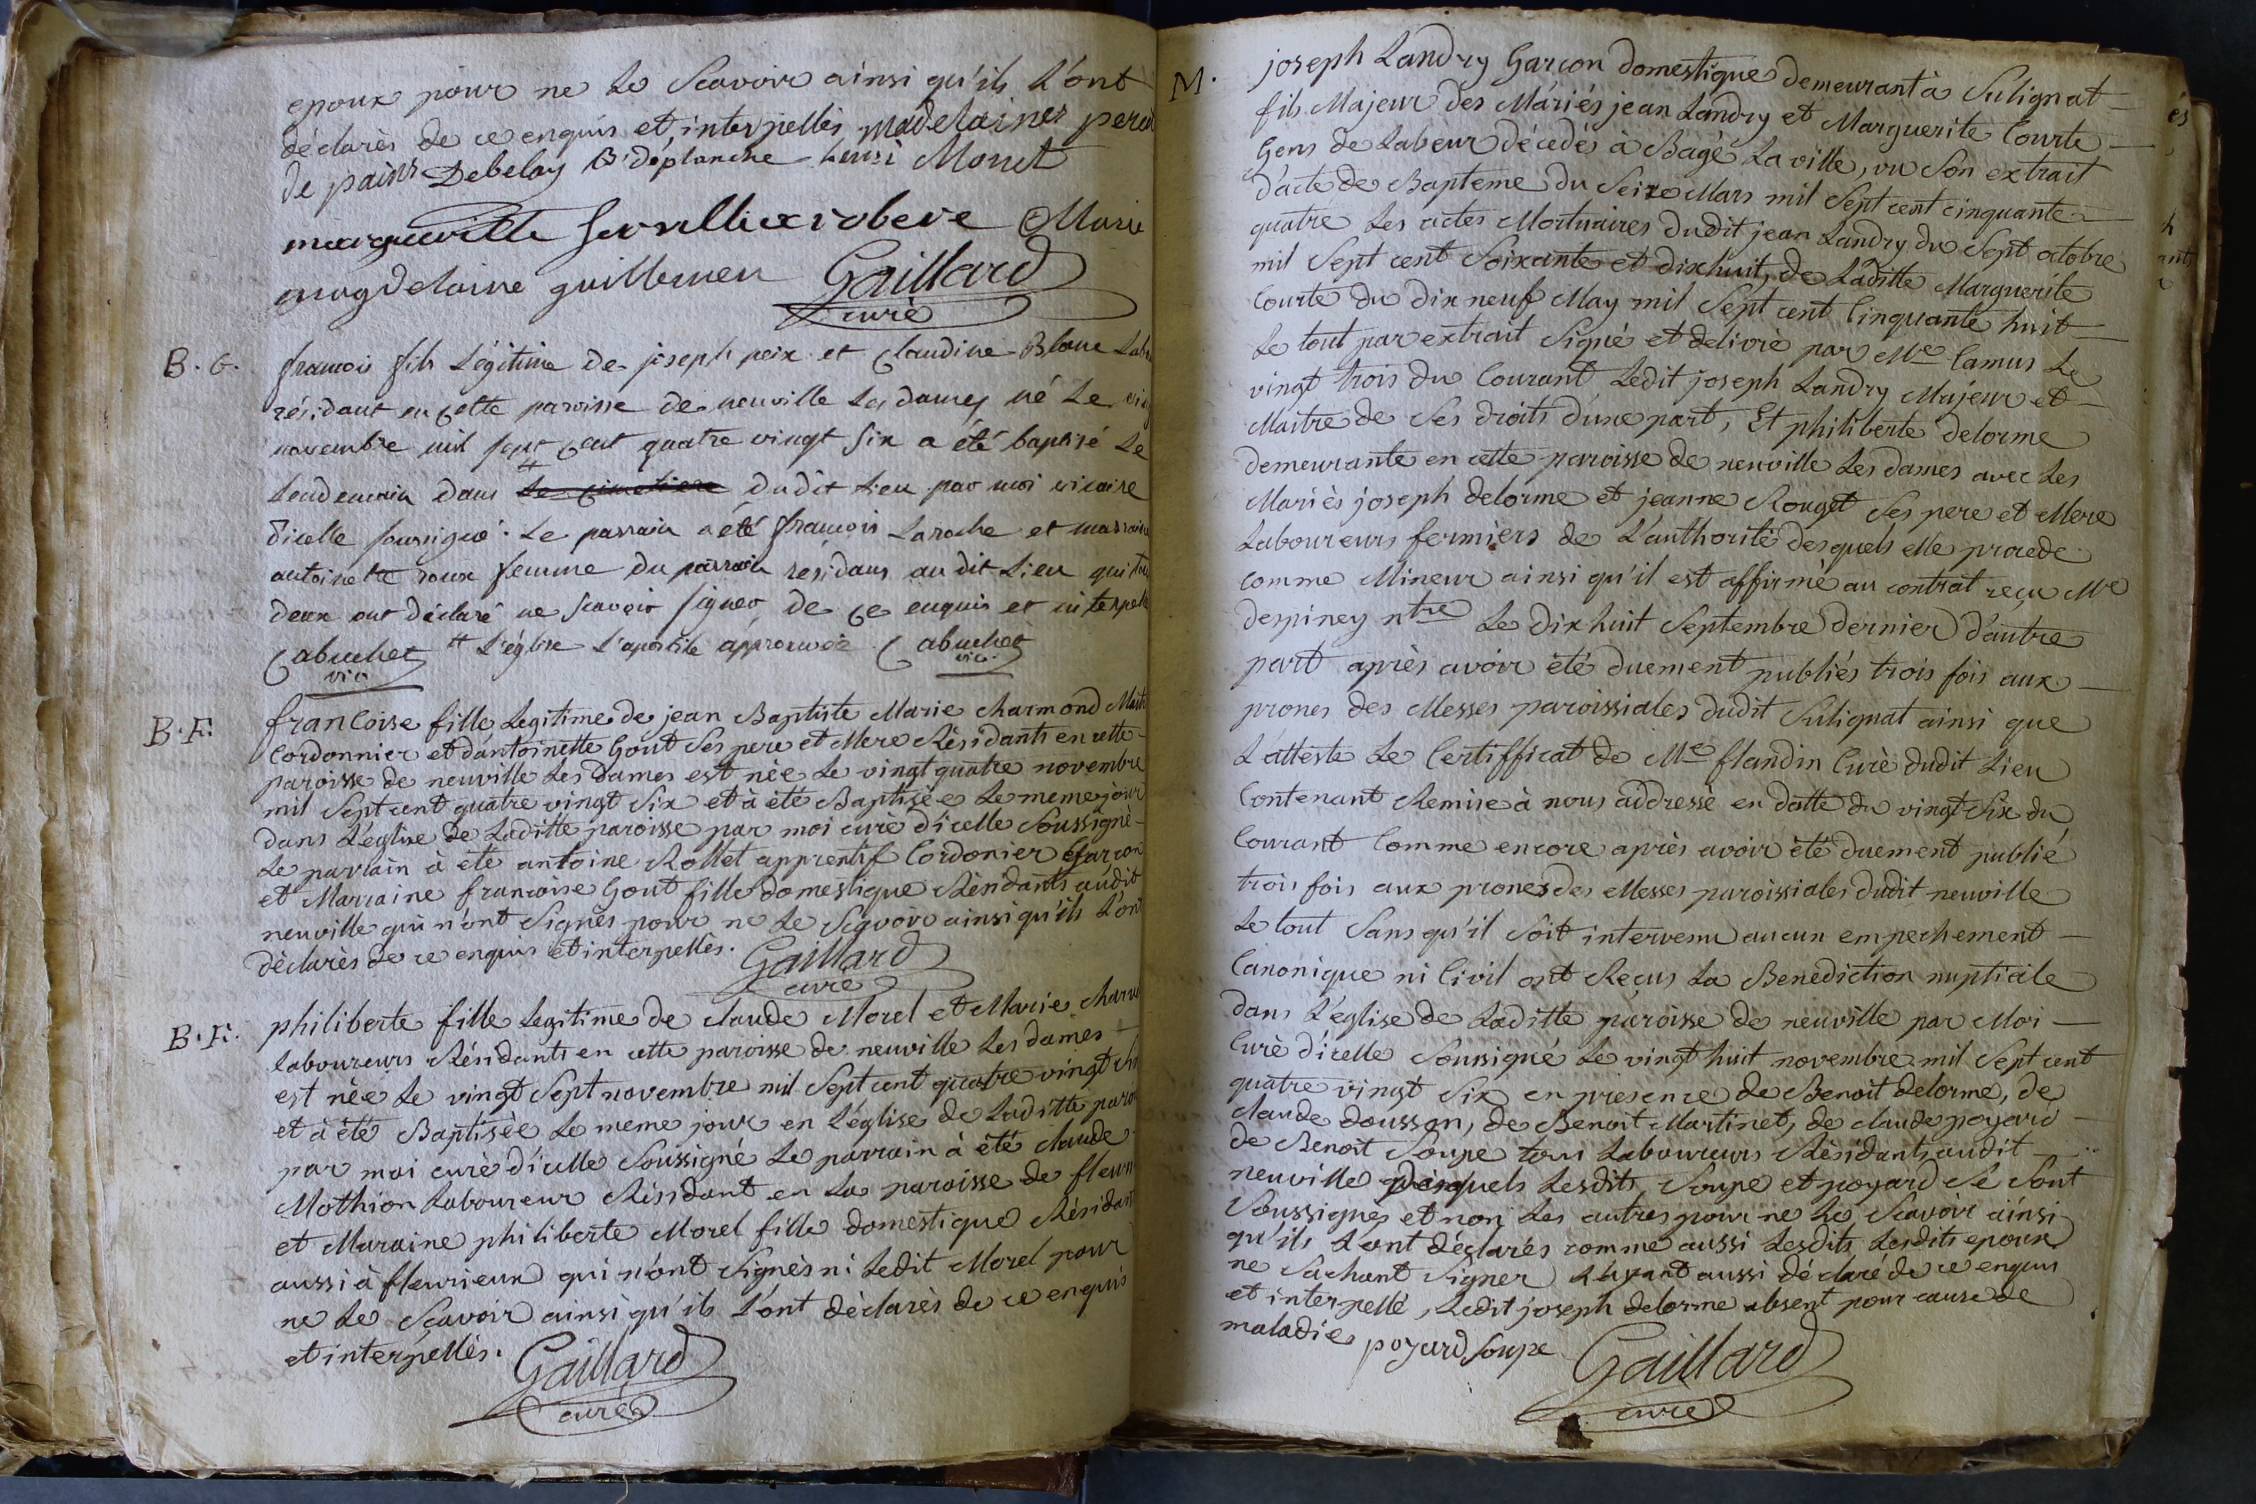 epoux pour ne Le Scavoir ainsi qu'ils L'ont
déclarès de ce enquis et interpellès madelaines
de pains Debelay B. déplanche Monet
margueritte robere Marie
magdelaine guillermen Gaillard
curè
B. G.
francois fils Légitime de joseph peix et Claudine Blanc
résidant en cette paroisse de neuville Les dames né Le
novembre mil sept cent quatre vingt six a été baptisé Le
Lendemain dans Le cimetiere dudit Lieu par moi vicaire
d'icelle soussigné. Le parrain a été francois Laroche et marraine
antoinette roux femme du parrain résidans au dit Lieu qui tous
deux ont déclaré ne scavoir signer de ce enquis et interpellés
Cabuchet L'église L'apostile approuvée Cabuchet
vic. vic.
B. F.
francoise fille Legitime de jean Baptiste Marie charmond
Cordonnier et d'antoinette Gout Ses pere et Mere Rèsidants en cette
paroisse de neuville Les Dames est nèe Le vingt quatre novembre
mil Sept cent quatre vingt Six et à étè Baptisèe Le meme jour
dans L'eglise de Laditte paroisse par moi curè d'icelle Soussignè
Le parrain à étè antoine Rollet apprentif Cordonier Garcon
et Marraine francoise Gout fille domestique Rèsidants audit
neuville qui n'ont Signès pour ne Le Sçavoir ainsi qu'ils L'ont
dèclarès de ce enquis et interpellès.
Gaillard
curè
B. F.
philiberte fille Legitime de claude Morel et Marie
laboureurs Rèsidants en cette paroisse de neuville Les dames
est nèe Le vingt Sept novembre mil Sept cent quatre vingt
et à étè Baptisèe Le meme jour en L'église de Laditte
par moi curè d'icelle Soussigné Le parrain à étè claude
Mothion Laboureur Rèsidant en La paroisse de
et Maraine philiberte Morel fille domestique Rèsidant
aussi à fleurieux qui n'ont Signès ni Ledit Morel pour
ne Le Scavoir ainsi qu'ils L'ont dèclarès de ce enquis
et interpellès.
Gaillard
curè
M.
joseph Landry Garcon domestique demeurant à Sulignat
fils Majeur des Mariés jean Landry et Marguerite Courte
Gens de Labeur décedés à Bagé La ville, vu Son extrait
d'acte de Bapteme du Seize Mars mil Sept cent cinquante
quatre Les actes Mortuaires dudit jean Landry du Sept octobre
mil Sept cent Soixante et dixhuit, de Laditte Marguerite
Courte du dix neuf May mil Sept cent Cinquante huit
Le tout par extrait Signé et delivrè par Me Camus Le
vingt trois du Courant Ledit joseph Landry Majeur et
Maitre de Ses droits d'une part, Et philiberte delorme
demeurante en cette paroisse de neuville Les dames avec Les
Mariès joseph delorme et jeanne Rouget Ses pere et Mere
Laboureurs fermiers de L'authorité desquels elle procede
comme Mineur ainsi qu'il est affirmè au contrat reçu Me
despiney ntre Le dix huit Septembre dernier d'autre
part après avoir été duement publiés trois fois aux
prones des Messes paroissiales dudit Sulignat ainsi que
L'atteste Le Certifficat de Me flandin Curè dudit Lieu
Contenant Remise à nous addressè en datte du vingt Six du
Courant Comme encore après avoir été duement publié
trois fois aux prones des Messes paroissiales dudit neuville
Le tout Sans qu'il Soit intervenu aucun empechement
Canonique ni Civil ont Reçus La Benediction nuptiale
dans L'église de Laditte paroisse de neuville par Moi
Curè d'icelle Soussigné Le vingt huit novembre mil Sept cent
quatre vingt Six en presence de Benoit delorme, de
claude dousson, de Benoit Martinet, de claude poyard
de Benoit Soupe tous Laboureurs Rèsidants audit
neuville desquels Lesdits Soupe et poyard Se Sont
Soussignes et non Les autres pour ne Le Scavoir ainsi
qu'ils L'ont déclarés comme aussi Lesdits Lesdits epoux
ne Sachant Signer L'ayant aussi déclaré de ce enquis
et interpellé, Ledit joseph delorme absent pour cause de
maladie
poyard Soupe Gaillard
curè